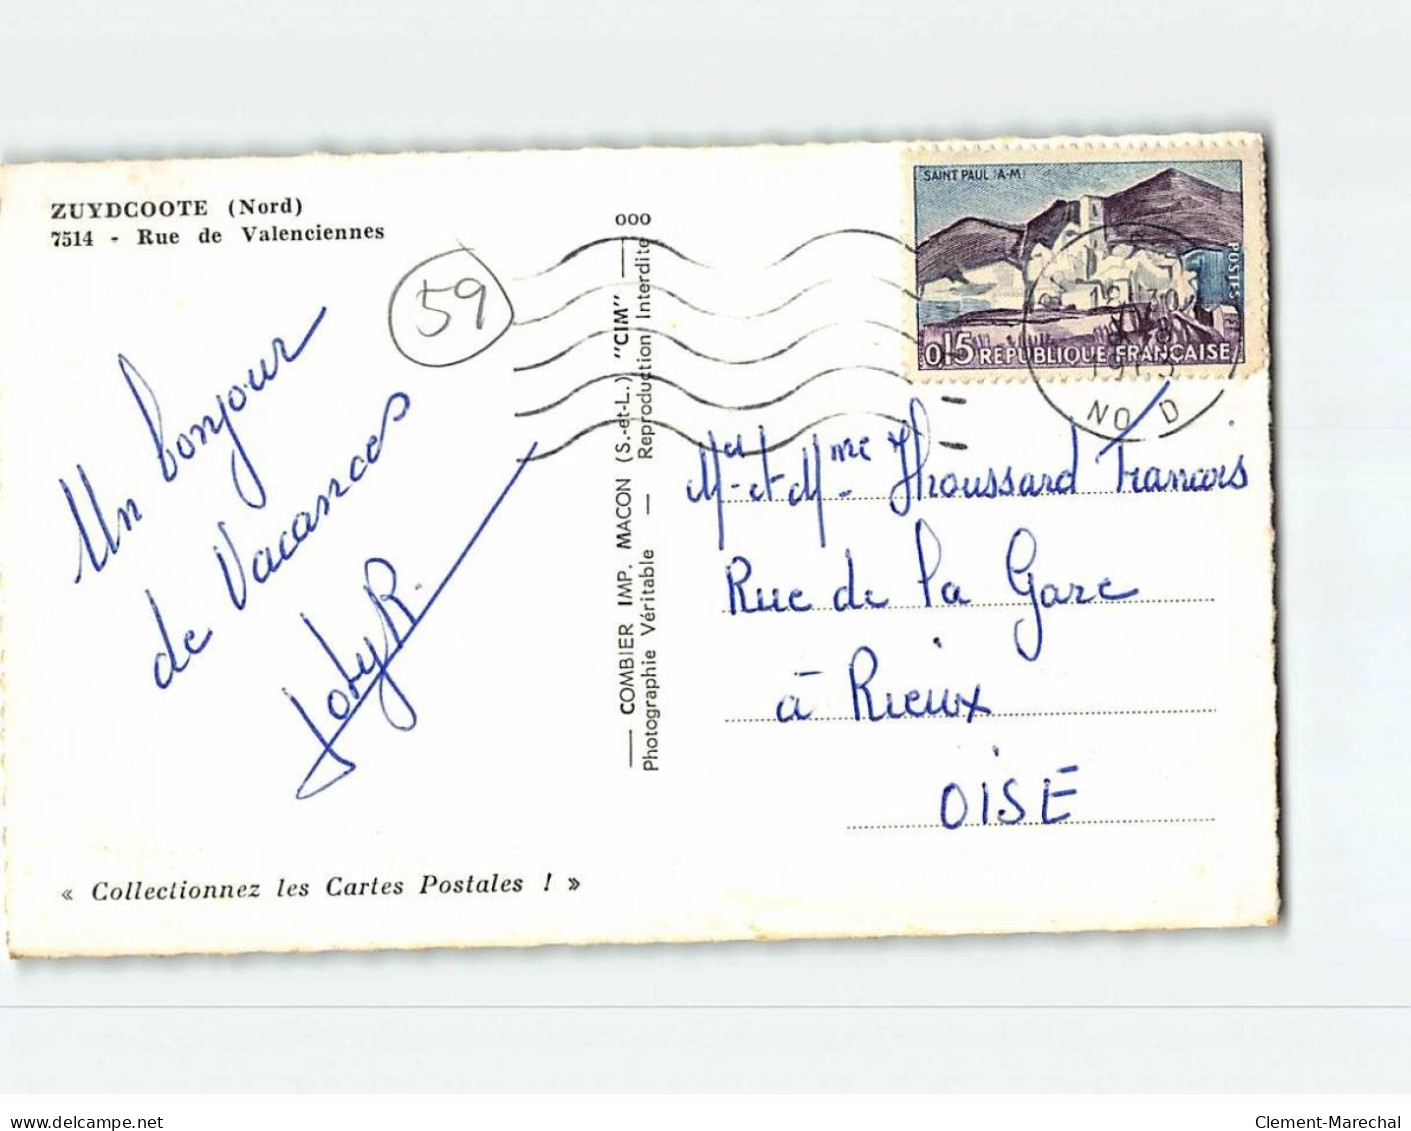 ZUYDCOOTE (Nord)
7514 - Rue de Valenciennes
59
Un bonjour
de Vacances
« Collectionnez les Cartes Postales ! »
— COMBIER IMP. MACON (S.-et-L.) "CIM" —
Photographie Véritable — Reproduction Interdite
000
SAINT PAUL (A-M)
POSTES
0,15 RÉPUBLIQUE FRANÇAISE
NORD
Mr et Mme Throussard Francois
Rue de la Gare
à Rieux
OISE
www.delcampe.net
Clement-Marechal